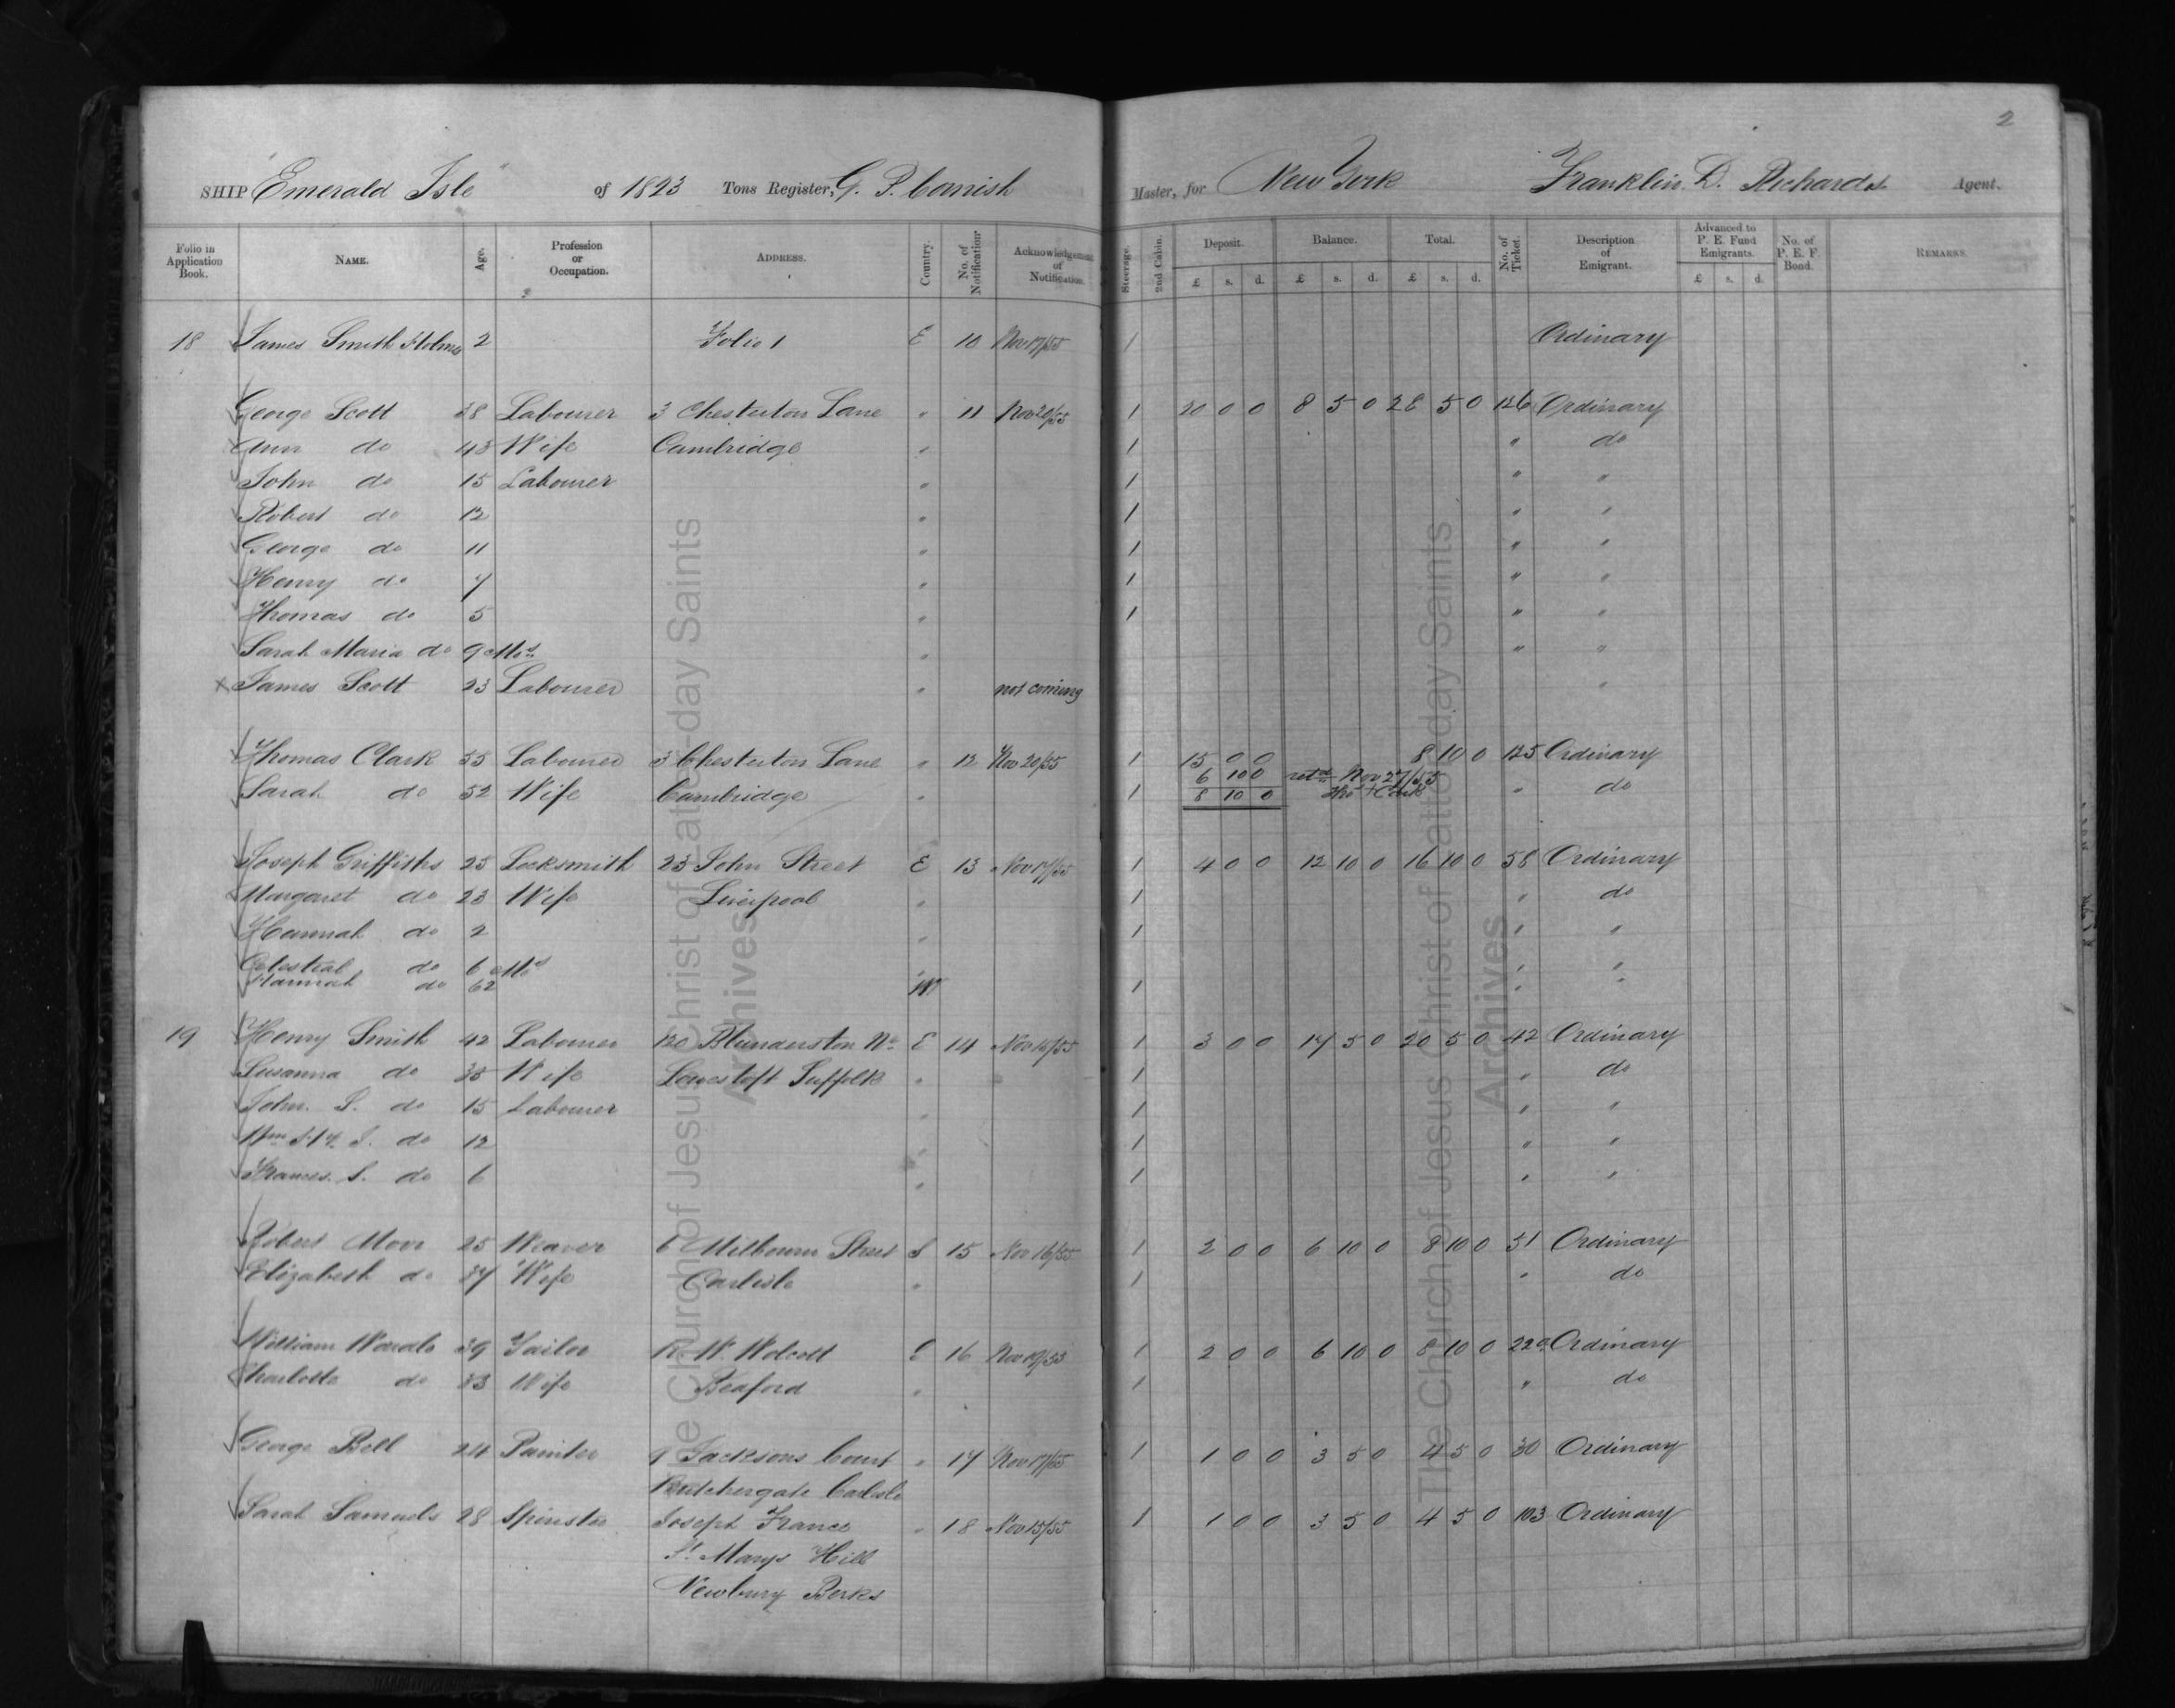 2
SHIP "Emerald Isle" of 1823 Tons Register, G. P. Cornish Master, for New York Franklin. D. Richards Agent.
Folio in Application Book. NAME. Age. Profession or Occupation. ADDRESS. Country. No. of Notification Acknowledgement of Notification. Steerage. 2nd Cabin. Deposit. Balance. Total. No. of Ticket. Description of Emigrant. Advanced to P. E. Fund Emigrants. No. of P. E. F. Bond. REMARKS.
£ s. d. £ s. d. £ s. d. £ s. d.
18 James Smith Holmes 2 Folio 1 E 10 Nov 17/55 1 Ordinary
George Scott 38 Labourer 3 Chesterton Lane " 11 Nov 20/55 1 20 0 0 8 5 0 28 5 0 126 Ordinary
Ann do 43 Wife Cambridge " 1 " do
John do 15 Labourer " 1 " "
Robert do 12 " 1 " "
George do 11 " 1 " "
Henry do 7 " 1 " "
Thomas do 5 " 1 " "
Sarah Maria do 9 Mos " " "
x James Scott 23 Labourer " not coming "
Thomas Clark 55 Labourer 3 Chesterton Lane " 12 Nov 20/55 1 15 0 0 8 10 0 125 Ordinary
6 10 0 retd Nov 27/55
Sarah do 52 Wife Cambridge " 1 8 10 0 Tho + Clark " do
Joseph Griffiths 25 Locksmith 23 John Street E 13 Nov 17/55 1 4 0 0 12 10 0 16 10 0 58 Ordinary
Margaret do 23 Wife Liverpool " 1 " do
Hannah do 2 " 1 " "
Celestial do 6 Mos " "
Hannah do 62 W 1 " "
19 Henry Smith 42 Labourer 120 Blunderston Nr E 14 Nov 16/55 1 3 0 0 17 5 0 20 5 0 42 Ordinary
Susanna do 35 Wife Lowestoft Suffolk " 1 " do
John. S. do 15 Labourer " 1 " "
Wm Hy. S. do 12 " 1 " "
Frances. S. do 6 " 1 " "
Robert Moor 25 Weaver 6 Milbourn Street S 15 Nov 16/55 1 2 0 0 6 10 0 8 10 0 51 Ordinary
Elizabeth do 37 Wife Carlisle " 1 " do
William 39 Tailor W. Wolcott E 16 1 2 0 0 6 10 0 8 10 0 Ordinary
Charlotte do 33 Wife Beaford " 1 " do
George Bell 24 Painter 9 Jacksons Court " 17 Nov 17/55 1 1 0 0 3 5 0 4 5 0 30 Ordinary
Butchergate Carlisle
Sarah Samuels 28 Spinster Joseph France " 18 Nov 15/55 1 1 0 0 3 5 0 4 5 0 103 Ordinary
St Marys Hill
Newbury Berks
The Church of Jesus Christ of Latter-day Saints
Archives
The Church of Jesus Christ of Latter-day Saints
Archives